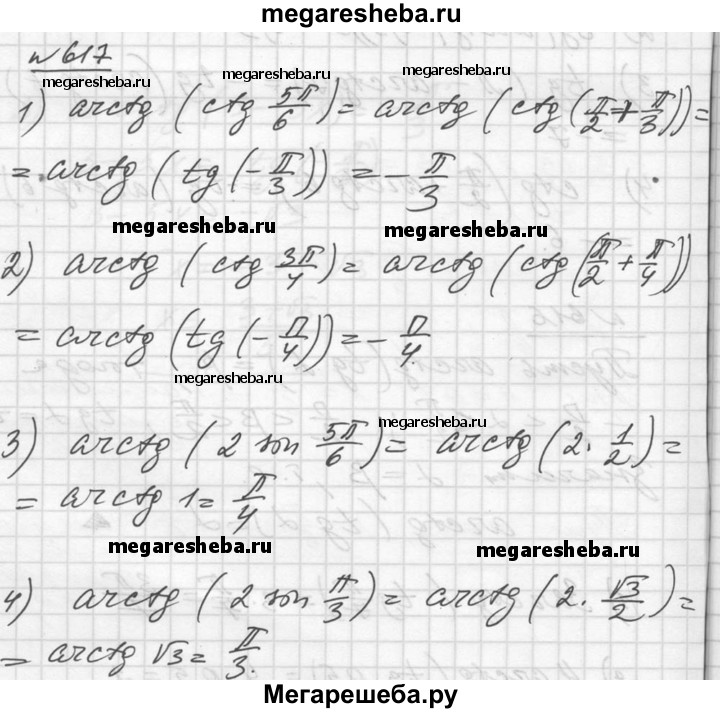 megaresheba.ru
№617
megaresheba.ru megaresheba.ru megaresheba.ru
1) arctg (ctg 5π/6) = arctg (ctg (π/2 + π/3)) =
= arctg (tg (-π/3)) = -π/3
megaresheba.ru megaresheba.ru
2) arctg (ctg 3π/4) = arctg (ctg (π/2 + π/4))
= arctg (tg (-π/4)) = -π/4.
megaresheba.ru megaresheba.ru
3) arctg (2 sin 5π/6) = arctg (2 · 1/2) =
= arctg 1 = π/4
megaresheba.ru megaresheba.ru
4) arctg (2 sin π/3) = arctg (2 · √3/2) =
= arctg √3 = π/3.
Мегарешеба.ру